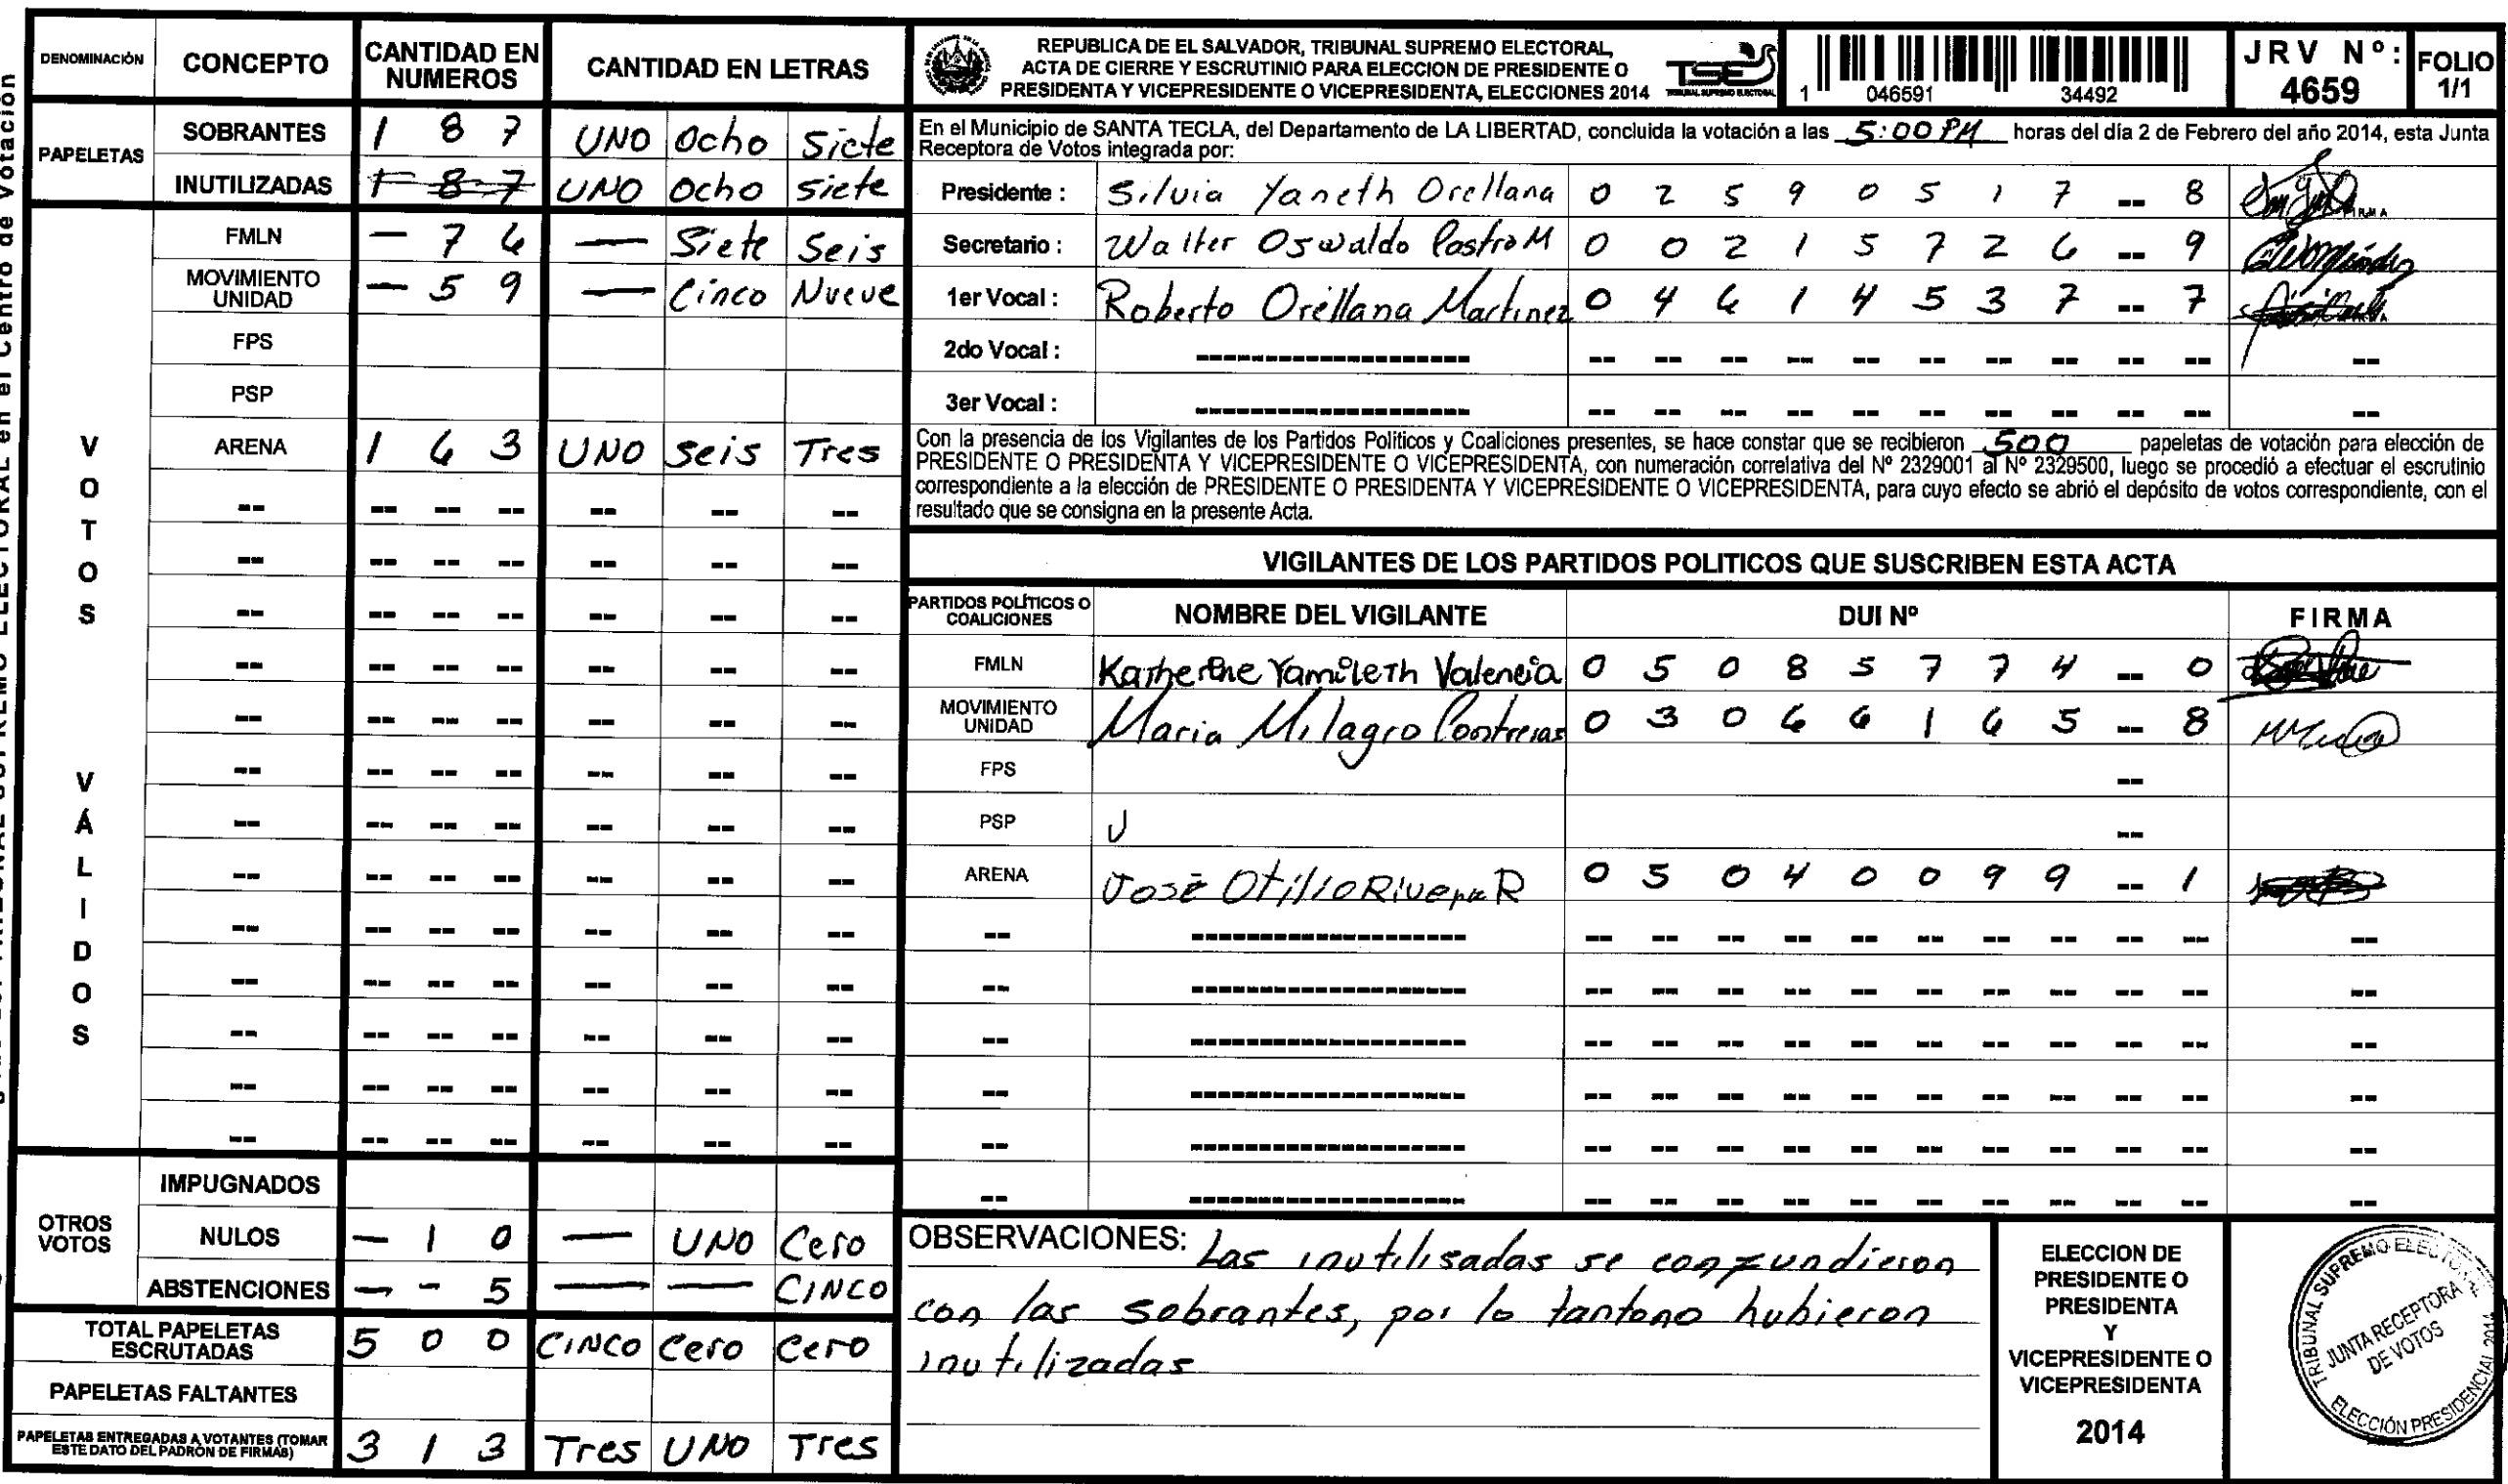 DENOMINACIÓN CONCEPTO CANTIDAD EN NUMEROS CANTIDAD EN LETRAS
PAPELETAS
SOBRANTES 1 8 7 UNO Ocho Siete
INUTILIZADAS 1 8 7 UNO Ocho siete
VOTOS VÁLIDOS
FMLN — 7 6 — Siete Seis
MOVIMIENTO UNIDAD — 5 9 — Cinco Nueve
FPS
PSP
ARENA 1 6 3 UNO seis Tres
OTROS VOTOS
IMPUGNADOS
NULOS — 1 0 — UNO Cero
ABSTENCIONES — - 5 — — CINCO
TOTAL PAPELETAS ESCRUTADAS 5 0 0 CINCO Cero Cero
PAPELETAS FALTANTES
PAPELETAS ENTREGADAS A VOTANTES (TOMAR ESTE DATO DEL PADRÓN DE FIRMAS) 3 1 3 Tres UNO Tres
REPUBLICA DE EL SALVADOR, TRIBUNAL SUPREMO ELECTORAL,
ACTA DE CIERRE Y ESCRUTINIO PARA ELECCION DE PRESIDENTE O
PRESIDENTA Y VICEPRESIDENTE O VICEPRESIDENTA, ELECCIONES 2014
TSE
TRIBUNAL SUPREMO ELECTORAL
1 046591 34492
JRV Nº: 4659
FOLIO 1/1
En el Municipio de SANTA TECLA, del Departamento de LA LIBERTAD, concluida la votación a las 5:00 PM horas del día 2 de Febrero del año 2014, esta Junta
Receptora de Votos integrada por:
Presidente : Silvia Yaneth Orellana 0 2 5 9 0 5 1 7 -- 8 FIRMA
Secretario : Walter Oswaldo Castro M 0 0 2 1 5 7 2 6 -- 9
1er Vocal : Roberto Orellana Martinez 0 4 6 1 4 5 3 7 -- 7
2do Vocal :
3er Vocal :
Con la presencia de los Vigilantes de los Partidos Politicos y Coaliciones presentes, se hace constar que se recibieron 500 papeletas de votación para elección de
PRESIDENTE O PRESIDENTA Y VICEPRESIDENTE O VICEPRESIDENTA, con numeración correlativa del Nº 2329001 al Nº 2329500, luego se procedió a efectuar el escrutinio
correspondiente a la elección de PRESIDENTE O PRESIDENTA Y VICEPRESIDENTE O VICEPRESIDENTA, para cuyo efecto se abrió el depósito de votos correspondiente, con el
resultado que se consigna en la presente Acta.
VIGILANTES DE LOS PARTIDOS POLITICOS QUE SUSCRIBEN ESTA ACTA
PARTIDOS POLÍTICOS O COALICIONES NOMBRE DEL VIGILANTE DUI Nº FIRMA
FMLN Katherine Yamileth Valencia 0 5 0 8 5 7 7 4 -- 0
MOVIMIENTO UNIDAD Maria Milagro Contreras 0 3 0 6 6 1 6 5 -- 8
FPS --
PSP --
ARENA José Otilio Rivera R 0 5 0 4 0 0 9 9 -- 1
OBSERVACIONES: Las inutilisadas se confundieron
con las sobrantes, por lo tanto no hubieron
inutilizadas
ELECCION DE
PRESIDENTE O
PRESIDENTA
Y
VICEPRESIDENTE O
VICEPRESIDENTA
2014
TRIBUNAL SUPREMO ELECTORAL
JUNTA RECEPTORA
DE VOTOS
ELECCIÓN PRESIDENCIAL 2014
en el Centro de Votación